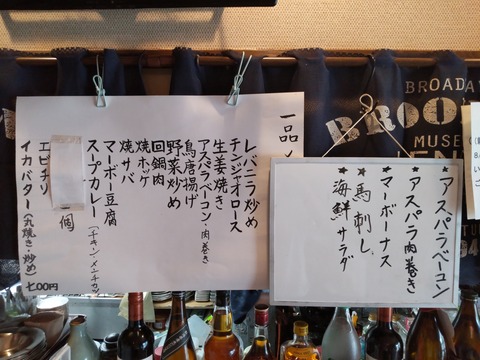 一品メ
レバニラ炒め
チンジャオロース
生姜焼き
アスパラベーコン・肉巻き
鳥唐揚げ
野菜炒め
回鍋肉
焼ホッケ
焼サバ
マーボー豆腐
スープカレー(チキン・メンチカツ)
個
エビチリ
イカバター(丸焼き・炒め)
七00円
★アスパラベーコン
★アスパラ肉巻き
★マーボーナス
★馬刺し
★海鮮サラダ
BROADWAY
BROO
MUSE